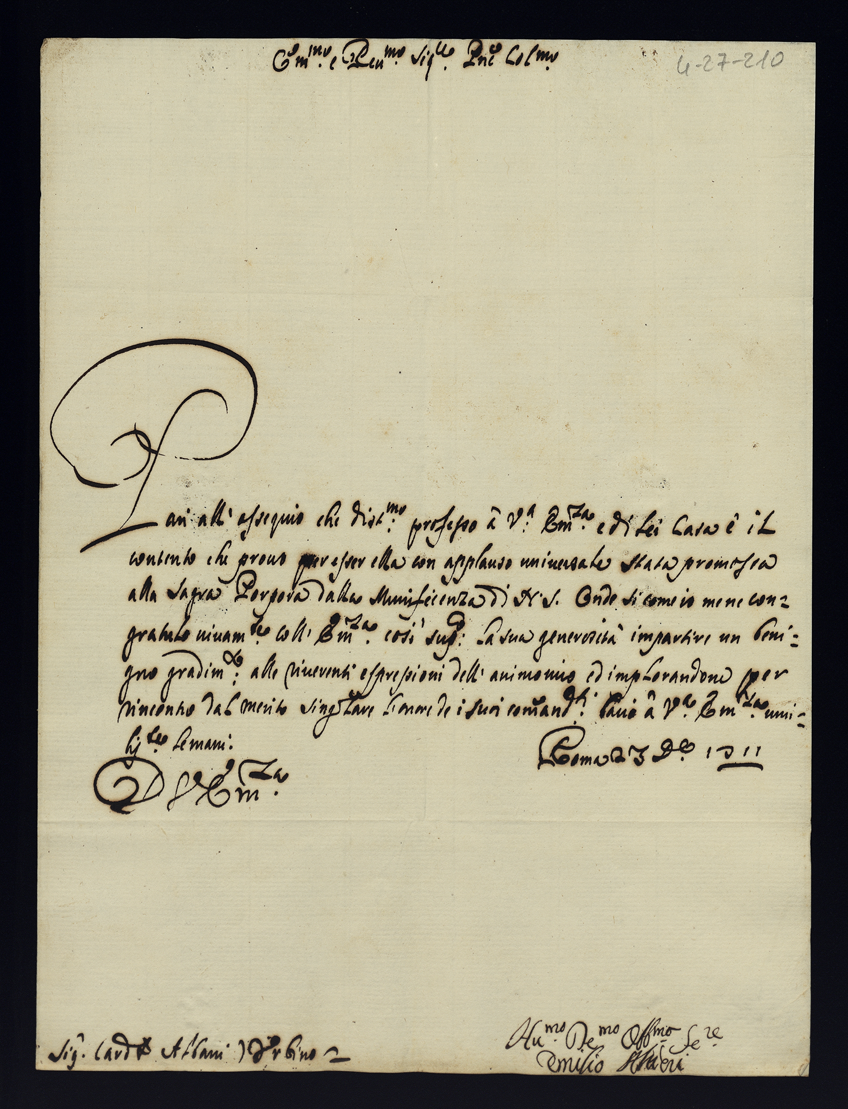 Em.mo e Reu.mo Sig.re Pne Col.mo
4-27-210
Pari all' ossequio che dist.mo professo à V.a Em.za e di lei Casa è il
contento che prouo per esser ella con applauso uniuersale stata promossa
alla Sagra Porpora dalla Munificenza di N. S. Onde si come io mene con=
gratulo viuam.te coll' Em.za così sup: la sua generosità impartire un beni=
gno gradim.to alle riuerenti espressioni dell' animo mio ed implorandone per
rincontro dal merito singolare l'onore de i suoi comand.ti bacio à V.a Em.za umi=
lis.te le mani.
Roma 23 Dec 1711
D V Em.za
Hu.mo De.mo Obb.mo Se.re
Emilio Altieri
Sig. Card Albani Urbino